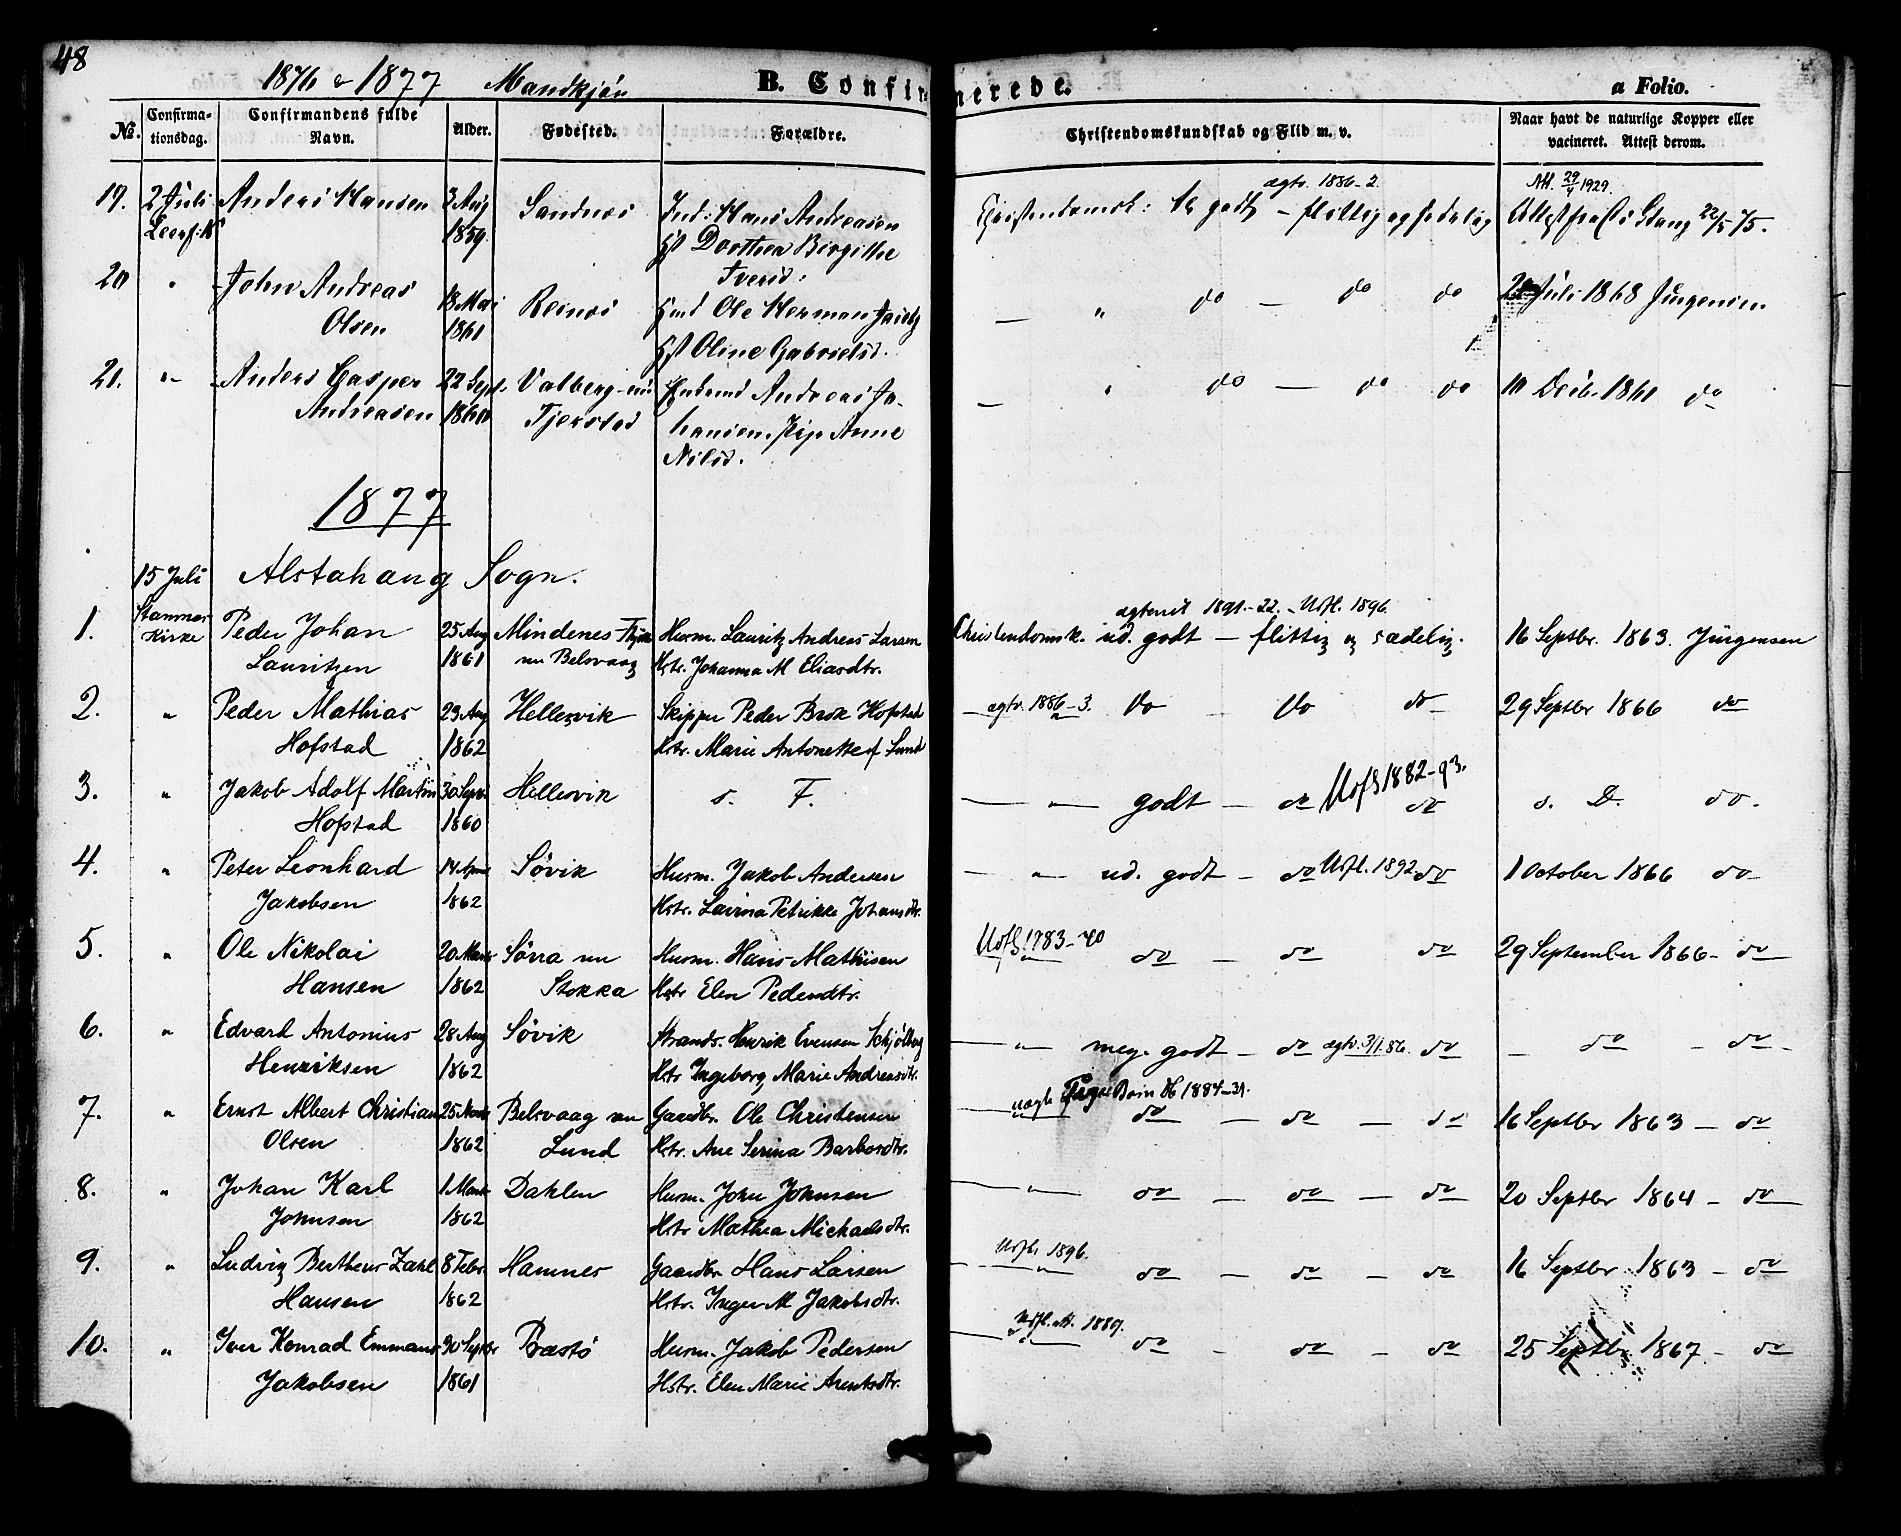 48
1876 & 1877 Mandkjøn B. Confirmerede. a Folio.
No. Confirmationsdag. Confirmandens fulde Navn. Alder. Fødested. Forældre. Christendomskundskab og Flid m. v. Naar havt de naturlige Kopper eller vacineret. Attest derom.
ægtv. 1886-2. Att. 29/4 1929.
19. 2 Juli Anders Hansen 3 Aug Sandnes Ind: Hans Andreasen godt – flittig og sædelig 22/5 75.
1859. Dorthea Birgithe
Iversd:
20 " John Andreas 18 Mai Reines Ole Herman " do – do do Juli 1868 Jürgensen
Olsen 1861 Oline Gabrielsd.
21. " Anders Casper 22 Sept. Valberg Andreas Jo- " do – do do 10 Decb. 1861 do
Andreasen 1860 Tjerstad hansen. Pige Anne
Nilsd.
1877
15 Juli Alstahaug Sogn.
ægteviet 1891-22. – Udfl. 1896.
1. Stamnes Peder Johan 25 Aug Mindenes Husm. Lauritz Andreas Larsen Christendomsk. ud. godt – flittig og sædelig. 16 Septbr. 1863. Jürgensen
Kirke Lauritzen 1861 nu Belsvaag Hstr. Johanna M Eliasdtr.
2. " Peder Mathias 23 Aug Hellesvik Skipper Peder Brok Hofstad ægtv. 1886-3. Do – Do do 29 Septbr 1866 do
Hofstad 1862 Hstr. Marie Antonette f Lund
3. " Jakob Adolf Martin 30 Sept. Hellesvik s. F. – " – godt – do Udfl 1882-93. do s. D. do.
Hofstad 1860
4. " Peter Leonhard 14 April Søvik Husm. Jakob Andersen – " – ud. godt – do Udfl. 1892 do 1 October 1866 do
Jakobsen 1862 Hstr. Lavina Petrikke Johansdtr.
5. " Ole Nikolai 20 Marts Sørra nu Husm. Hans Mathisen Udfl 1883-40 do – do do 29 September 1866 – do
Hansen 1862 Stokka Hstr Elen Pedersdtr.
6. " Edvard Antonius 28 Aug Søvik Strands. Henrik Evensen – " meg. godt – do ægtv. 3/1.86. do – do – do –
Henriksen 1862 Hstr Ingeborg Marie Andreasdtr.
1884-31.
7. " Ernst Albert Christian 25 Belsvaag nu Gaardbr. Ole Christensen do – do – do 16 Septbr 1863 – do
Olsen 1862 Lund Hstr. Ane Serina Barbosdtr.
8. " Johan Karl 1 Marts Dahlen Husm. John Johnsen – " – do – do – do 20 Septbr 1864 – do
Johnsen 1862 Hstr Mathea Michaelsdtr.
9. " Ludvig Bertheus Zahl 8 Febr. Hamnes Gaardbr Hans Larsen Udfl. 1896. do – do – do 16 Septbr 1863 – do
Hansen 1862 Hstr. Inger M Jakobsdtr.
10. " Iver Konrad Emmanuel 30 Septbr Bæstø Husm. Jakob Pedersen Udfl. Att. 1889. do – do – do 25 Septbr 1867 – do
Jakobsen 1861 Hstr. Elen Marie Arentsdtr.